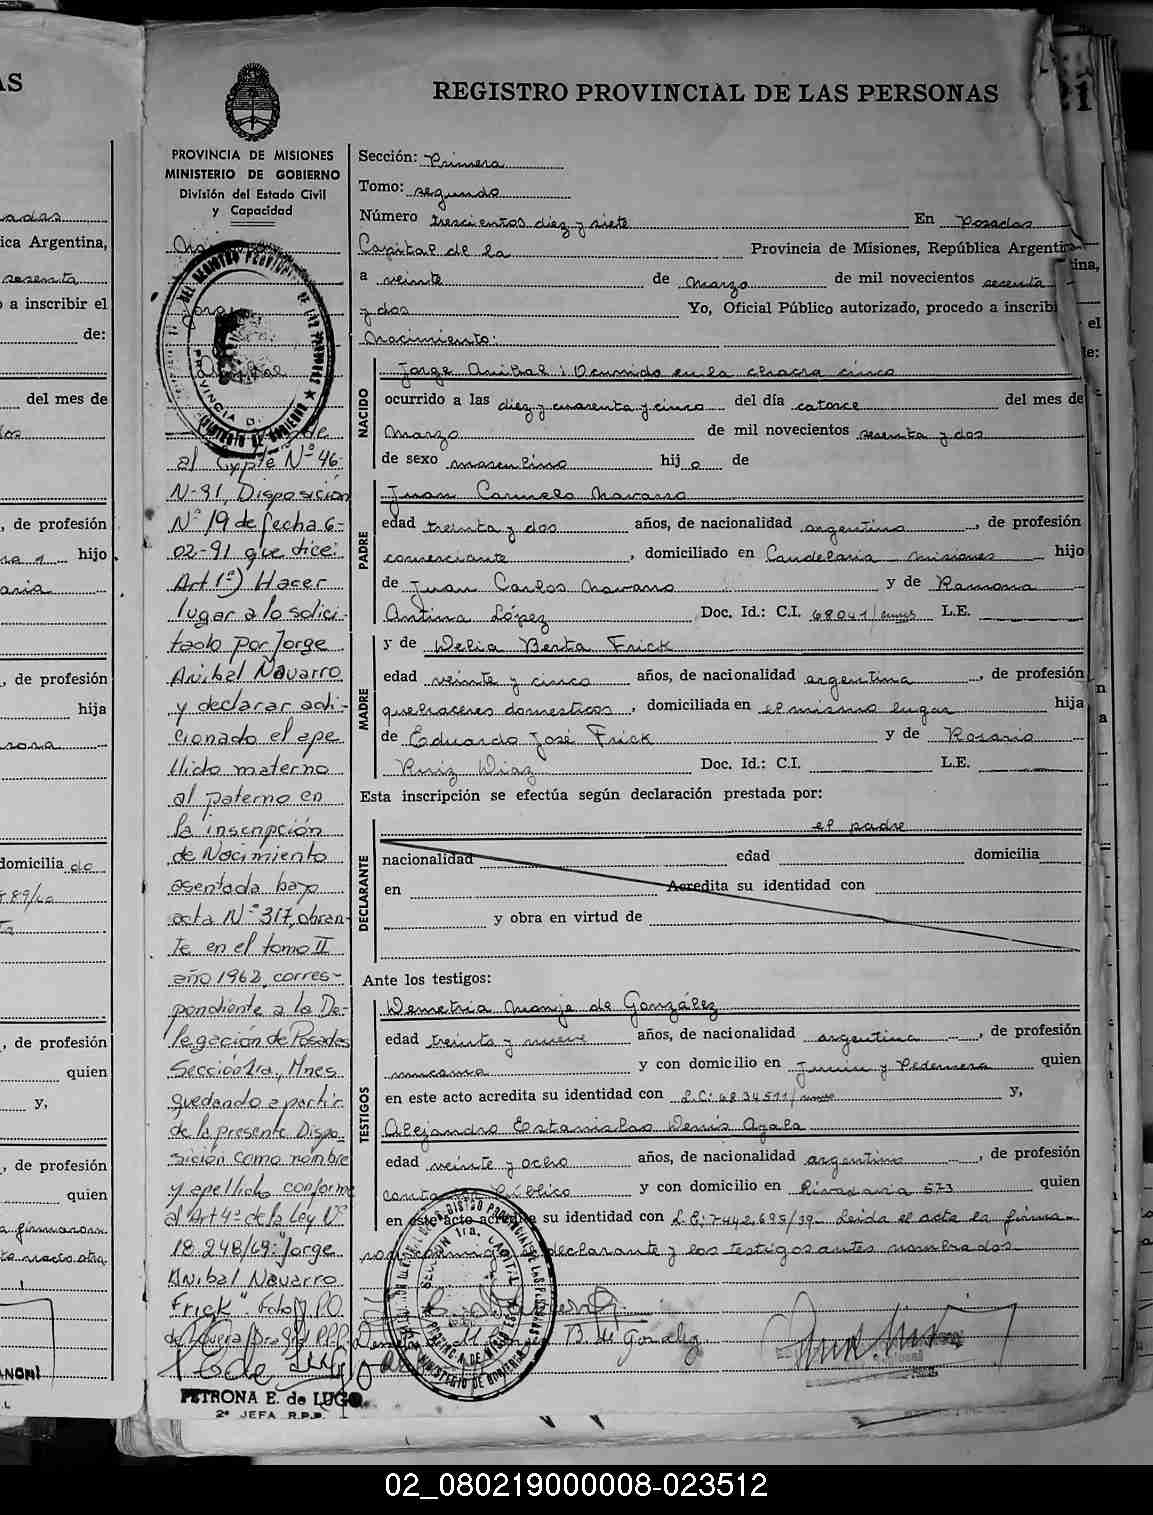 REGISTRO PROVINCIAL DE LAS PERSONAS
PROVINCIA DE MISIONES
MINISTERIO DE GOBIERNO
División del Estado Civil
y Capacidad
al Expte Nº 46-
N-91, Disposición
Nº 19 de fecha 6-
02-91 que dice:
Art 1º) Hacer
lugar a lo solici-
tado por Jorge
Anibal Navarro
y declarar adi-
cionado el ape
llido materno
al paterno en
la inscripción
de Nacimiento
asentada bajo
acta Nº 317, obran-
te en el tomo II
año 1962, corres-
pondiente a la De-
legación de Posadas
Sección 1ra, Mnes
quedando a partir
de la presente Dispo-
sición como nombre
y apellido conforme
al Art 4º de la Ley Nº
18.248/69: "Jorge
Anibal Navarro
Frick".
PETRONA E. de LUGO
2ª JEFA R.P.P.
Sección: Primera
Tomo: segundo
Número trescientos diez y siete En Posadas
Capital de la Provincia de Misiones, República Argentina
a veinte de Marzo de mil novecientos sesenta
y dos Yo, Oficial Público autorizado, procedo a inscribi
Nacimiento:
NACIDO
Jorge Anibal: Ocurrido en la chacra cinco
ocurrido a las diez y cuarenta y cinco del día catorce del mes de
Marzo de mil novecientos sesenta y dos
de sexo masculino hijo de
PADRE
Juan Carmelo Navarro
edad treinta y dos años, de nacionalidad argentino, de profesión
comerciante, domiciliado en Candelaria Misiones hijo
de Juan Carlos Navarro y de Ramona
Antina López Doc. Id.: C.I. 68041/ L.E.
MADRE
y de Delia Berta Frick
edad veinte y cinco años, de nacionalidad argentina, de profesión
quehaceres domesticos, domiciliada en el mismo lugar hija
de Eduardo José Frick y de Rosario
Ruiz Diaz Doc. Id.: C.I. L.E.
Esta inscripción se efectúa según declaración prestada por:
DECLARANTE
el padre
nacionalidad edad domicilia
en Acredita su identidad con
y obra en virtud de
Ante los testigos:
TESTIGOS
Demetria Monje de González
edad treinta y nueve años, de nacionalidad argentina, de profesión
mucama y con domicilio en Junin y Pedernera quien
en este acto acredita su identidad con L.C: y,
Alejandro Estanislao Denis Ayala
edad veinte y ocho años, de nacionalidad argentino, de profesión
Contador Público y con domicilio en Rivadavia 573 quien
en este acto acredita su identidad con L.E: 7442,695/39 Leida el acta la firma
declarante y los testigos antes nombrados
B. de Gonzalez
02_080219000008-023512